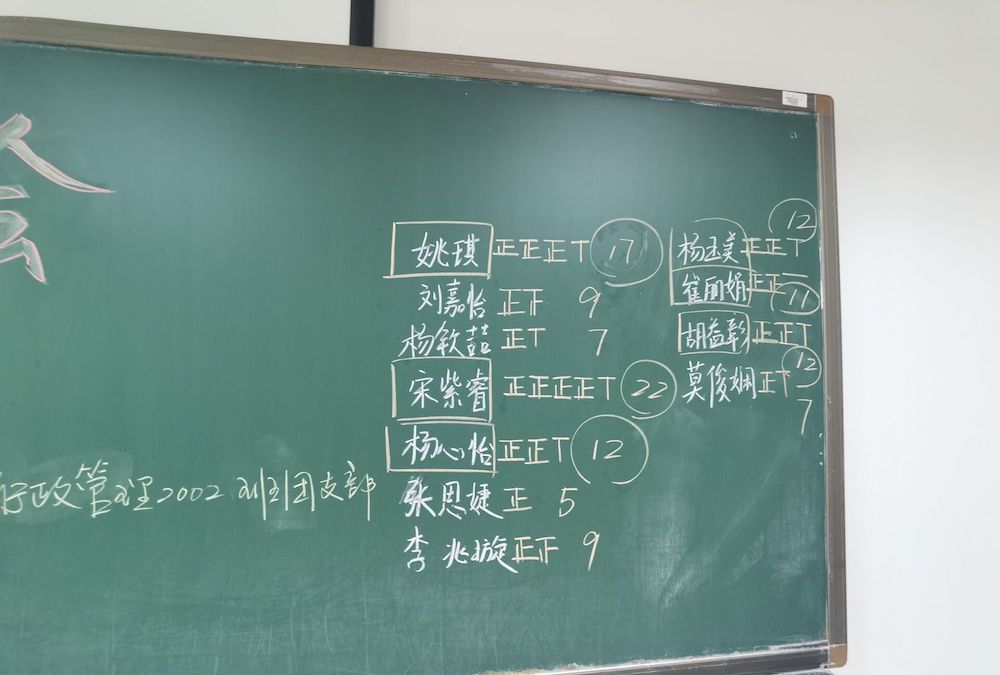 会
姚琪 正正正丅 17
刘嘉怡 正正 9
杨钦喆 正丅 7
宋紫睿 正正正正丅 22
杨心怡 正正丅 12
张恩婕 正 5
李兆璇 正正 9
行政管理2002班团支部
杨玉美 正正丅 12
崔丽娟 正正一 11
胡益彰 正正丅 12
莫俊娴 正丅 7